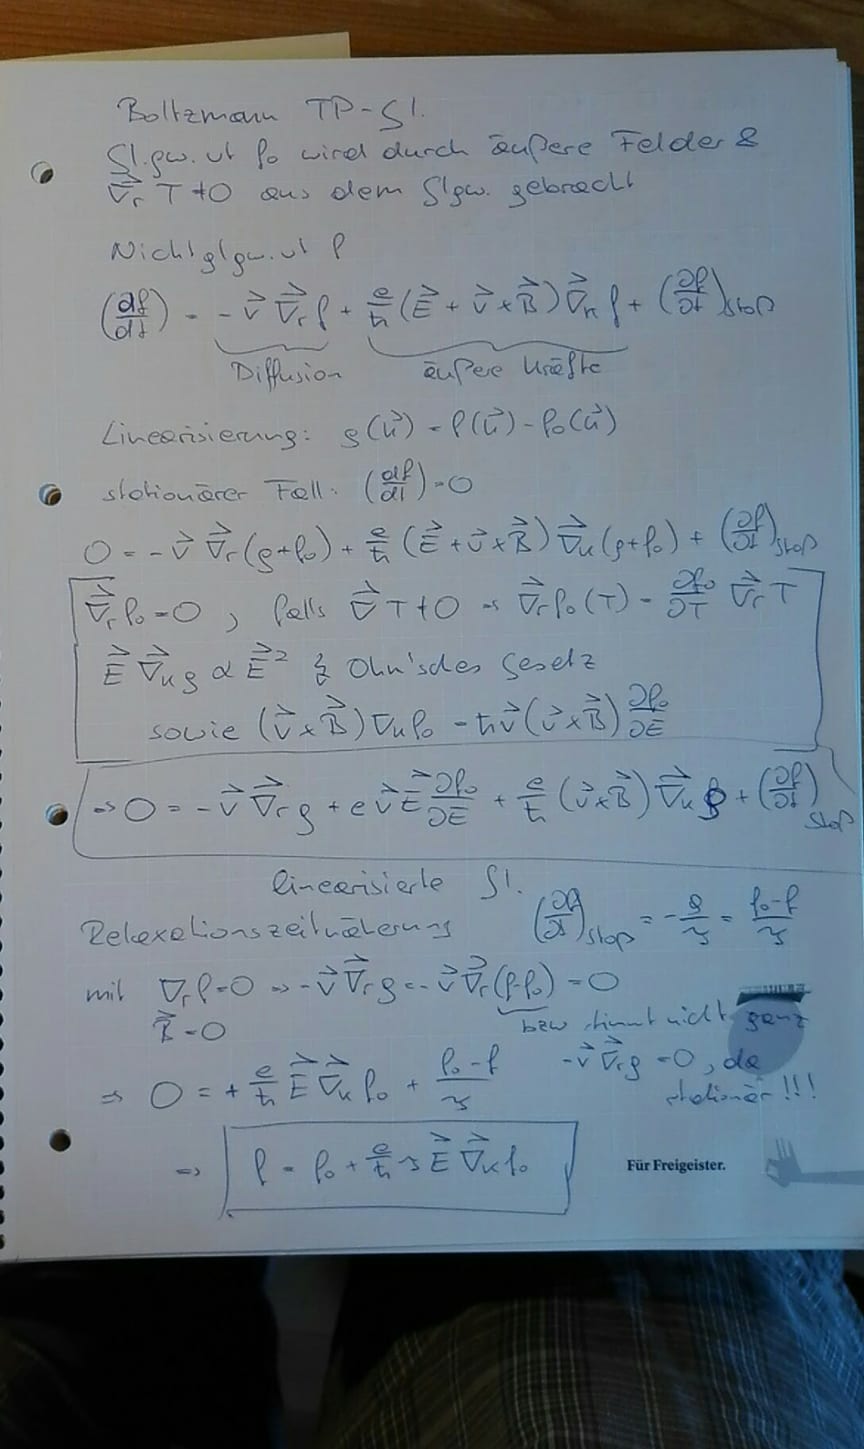 Boltzmann TP-Gl.
Gl.gw.vt f₀ wird durch äußere Felder &
∇⃗ᵣ T ≠ 0 aus dem Glgw. gebracht
Nichtglgw.vt f
(df/dt) = - v⃗ ∇⃗ᵣ f + e/ħ (E⃗ + v⃗ × B⃗) ∇⃗ₖ f + (∂f/∂t)Stoß
Diffusion äußere Kräfte
Linearisierung: g(k⃗) = f(k⃗) - f₀(k⃗)
stationärer Fall: (df/dt) = 0
0 = - v⃗ ∇⃗ᵣ (g+f₀) + e/ħ (E⃗ + v⃗ × B⃗) ∇⃗ₖ (g+f₀) + (∂f/∂t)Stoß
∇⃗ᵣ f₀ = 0 , falls ∇⃗ T ≠ 0 ⇒ ∇⃗ᵣ f₀(T) = ∂f₀/∂T ∇⃗ᵣ T
E⃗ ∇⃗ₖ g ∝ E⃗² ↯ Ohm'sches Gesetz
sowie (v⃗ × B⃗) ∇ₖ f₀ = ħ v⃗ (v⃗ × B⃗) ∂f₀/∂E
⇒ 0 = - v⃗ ∇⃗ᵣ g + e v⃗ E⃗ ∂f₀/∂E + e/ħ (v⃗ × B⃗) ∇⃗ₖ g + (∂f/∂t)Stoß
linearisierte Gl.
Relaxationszeitnäherung (∂f/∂t)Stoß = - g/τ = f₀-f/τ
mit ∇ᵣ f = 0 ⇒ - v⃗ ∇⃗ᵣ g = - v⃗ ∇⃗ᵣ (f-f₀) = 0
B⃗ = 0 bzw stimmt nicht ganz
- v⃗ ∇⃗ᵣ g = 0 , da
⇒ 0 = + e/ħ E⃗ ∇⃗ₖ f₀ + f₀-f/τ stationär !!!
⇒ f = f₀ + e/ħ τ E⃗ ∇⃗ₖ f₀
Für Freigeister.